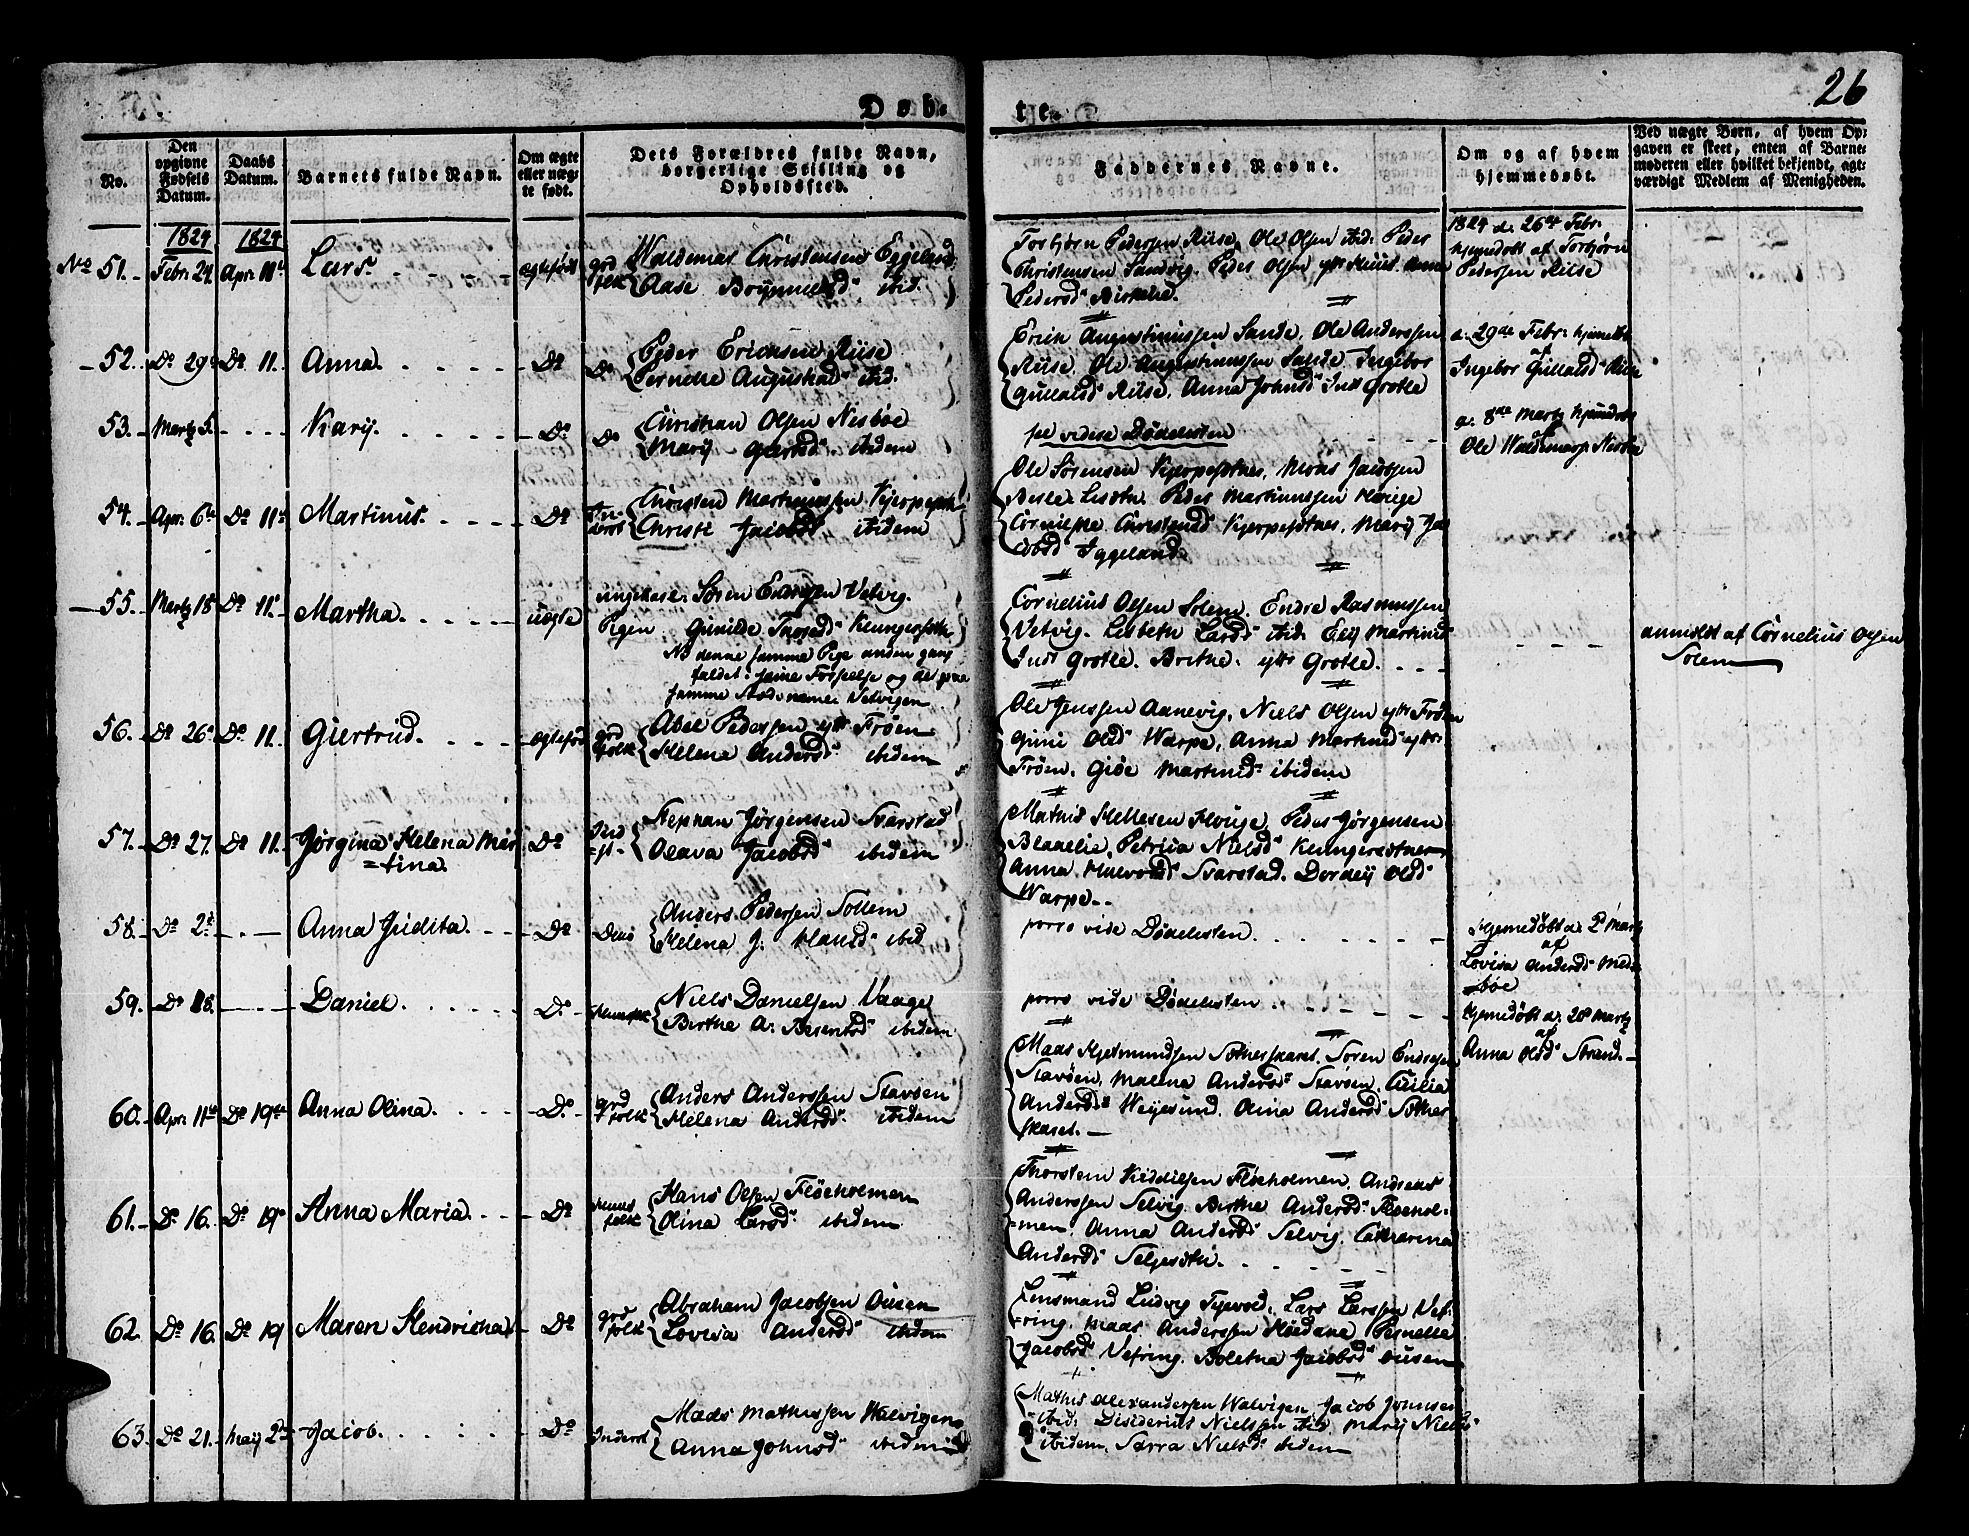 26
Døb-
te.
No.
Den opgivne Fødsels Datum.
Daabs Datum.
Barnets fulde Navn.
Om ægte eller uægte født.
Dets Forældres fulde Navn, borgerlige Stilling og Opholdsted.
Faddernes Navne.
Om og af hvem hjemmedøbt.
Ved uægte Børn, af hvem Opgaven er skeet, enten af Barnemoderen eller hvilket bekjendt, agtværdigt Medlem af Menigheden.
1824 1824
No 51. Febr: 24. Apr: 11te Lars. ægteføde grd folk Waldemar Christensen Eggeland
Aase ibid.
Torbjørn Pedersen Riise, Ole Olsen ibid: Peder
Christensen Sandvig. Peder Olsen ytt: Riise. Anna
Pedersd
1824 d: 26de Febr:
hjemdøbt af Torbjørn
Pedersen Riise
52. Do 29de Do 11. Anna. Do Do Peder Ericksen Riise
Pernelle Augustind ibid.
Erich Augustinussen Sande, Ole Anderssen
Riise, Ole Augustinussen Sande, Ingebor
Gullaksd Riise, Anna Johnsd Indr Grotle
d: 29de Febr: hjemdbt
af
Ingebor Gullaksd Riise
53. Martz 5. Karij. Do Do Christian Olsen Nesbøe
Marij Giertsd. ibidem
videre Dødelisten
d: 8de Martz hjemdøbt
af
Ole Waldemars. Nesbøe
54. Apr: 6te Do 11te Martinus. Do Inderst Christen Martinussen
Christi Jacobsd ibidem
Ole Sørensen Mons Jacobsen
Peder Martinussen Houge
Christensd Marij Ja-
cobsd Iggeland.
55. Martz 18 Do 11te Martha. uægte ungekarl. Søren Endresen Vetvig.
Pigen. Gunilde
NB denne samme Pige anden gang
faldet i sine Forseelse og det paa
samme Stæd nama: Vetvigen
Cornelius Olsen Solem. Endre Rasmussen
Vetvig. Lisbeth Larsd ibid: Elij Martinsd
Indr Grotle. Brithe ytt: Grotle.
anmeldt af Cornelius Olsen
Solem
56. Do 26de Do 11. Giertrud. ægteføde grd folk Abel Pedersen ytt: Frøen
Helena Andersd ibidem
Ole Jenssen Aanevig. Niels Olsen ytt: Frøen
Guni Olsd Warpe, Anna Martinsd ytt:
Frøen. Gide Martinsd ibidem
57. Do 27. Do 11. Jørgina Helena Mar
=tina. Do Ind
=st. Stephan Jørgensen Svarstad
Olava Jacobsd ibidem
Mathis Hellesen Houge, Peder Jørgensen
Blaaelie, Petricia Nielsd
Anna Halvorsd Svarstad. Dordeij Olsd
Warpe.
58. Do 2d Anna Judita. Do Anders Pedersen Sollem
Helena J. Hansd ibid
porro vide Dødelisten.
Hjemedøbt d: 2d Martz
af
Lovisa Andersd
bøe
59. Do 18. Daniel. Do Huusfolk Niels Danielsen Vaage
Birthe A: ibidem
porro vide Dødelisten
Hjemedøbt d: 20d Martz
af
Anna Olsd Strand.
60. Apr: 11te Do 19de Anna Olina. Do grd folk Anders Anderssen Stavøen
Helena Andersd. ibidem
Mads Søren Endresen
Stavøen, Malena Andersd Stavøen. Cicilia
Andersd Olina Andersd
61. Do 16. Do 19de Anna Maria. Do Huus folk Hans Olsen Fløeholmen
Olina Larsd. ibidem
Thorsten Fløeholmen. Andreas
Anderssen Selvig. Birthe Andersd Fløehol-
men. Anna Andersd Selvig. Catharina
Andersd
62. Do 16. Do 19 Maren Hendricha Do grd folk Abraham Jacobsen Ousen
Lovisa Andersd ibidem
Lensmand Ludvig Lars Larssen Vef-
ring. Mads Anderssen Pernelle
Jacobsd Vefring. Boletha Jacobsd Ousen
63. Do 21. Maij 2de Jacob. Do Inderst Mads Mathissen Walvigen
Anna Johnsd ibidem
Mathis Alexandersen Walvigen. Jacob Johnsen
ibid: Disiderius Nielssen ibid. Marij Nielsd
ibidem. Sarra Nielsd ibidem